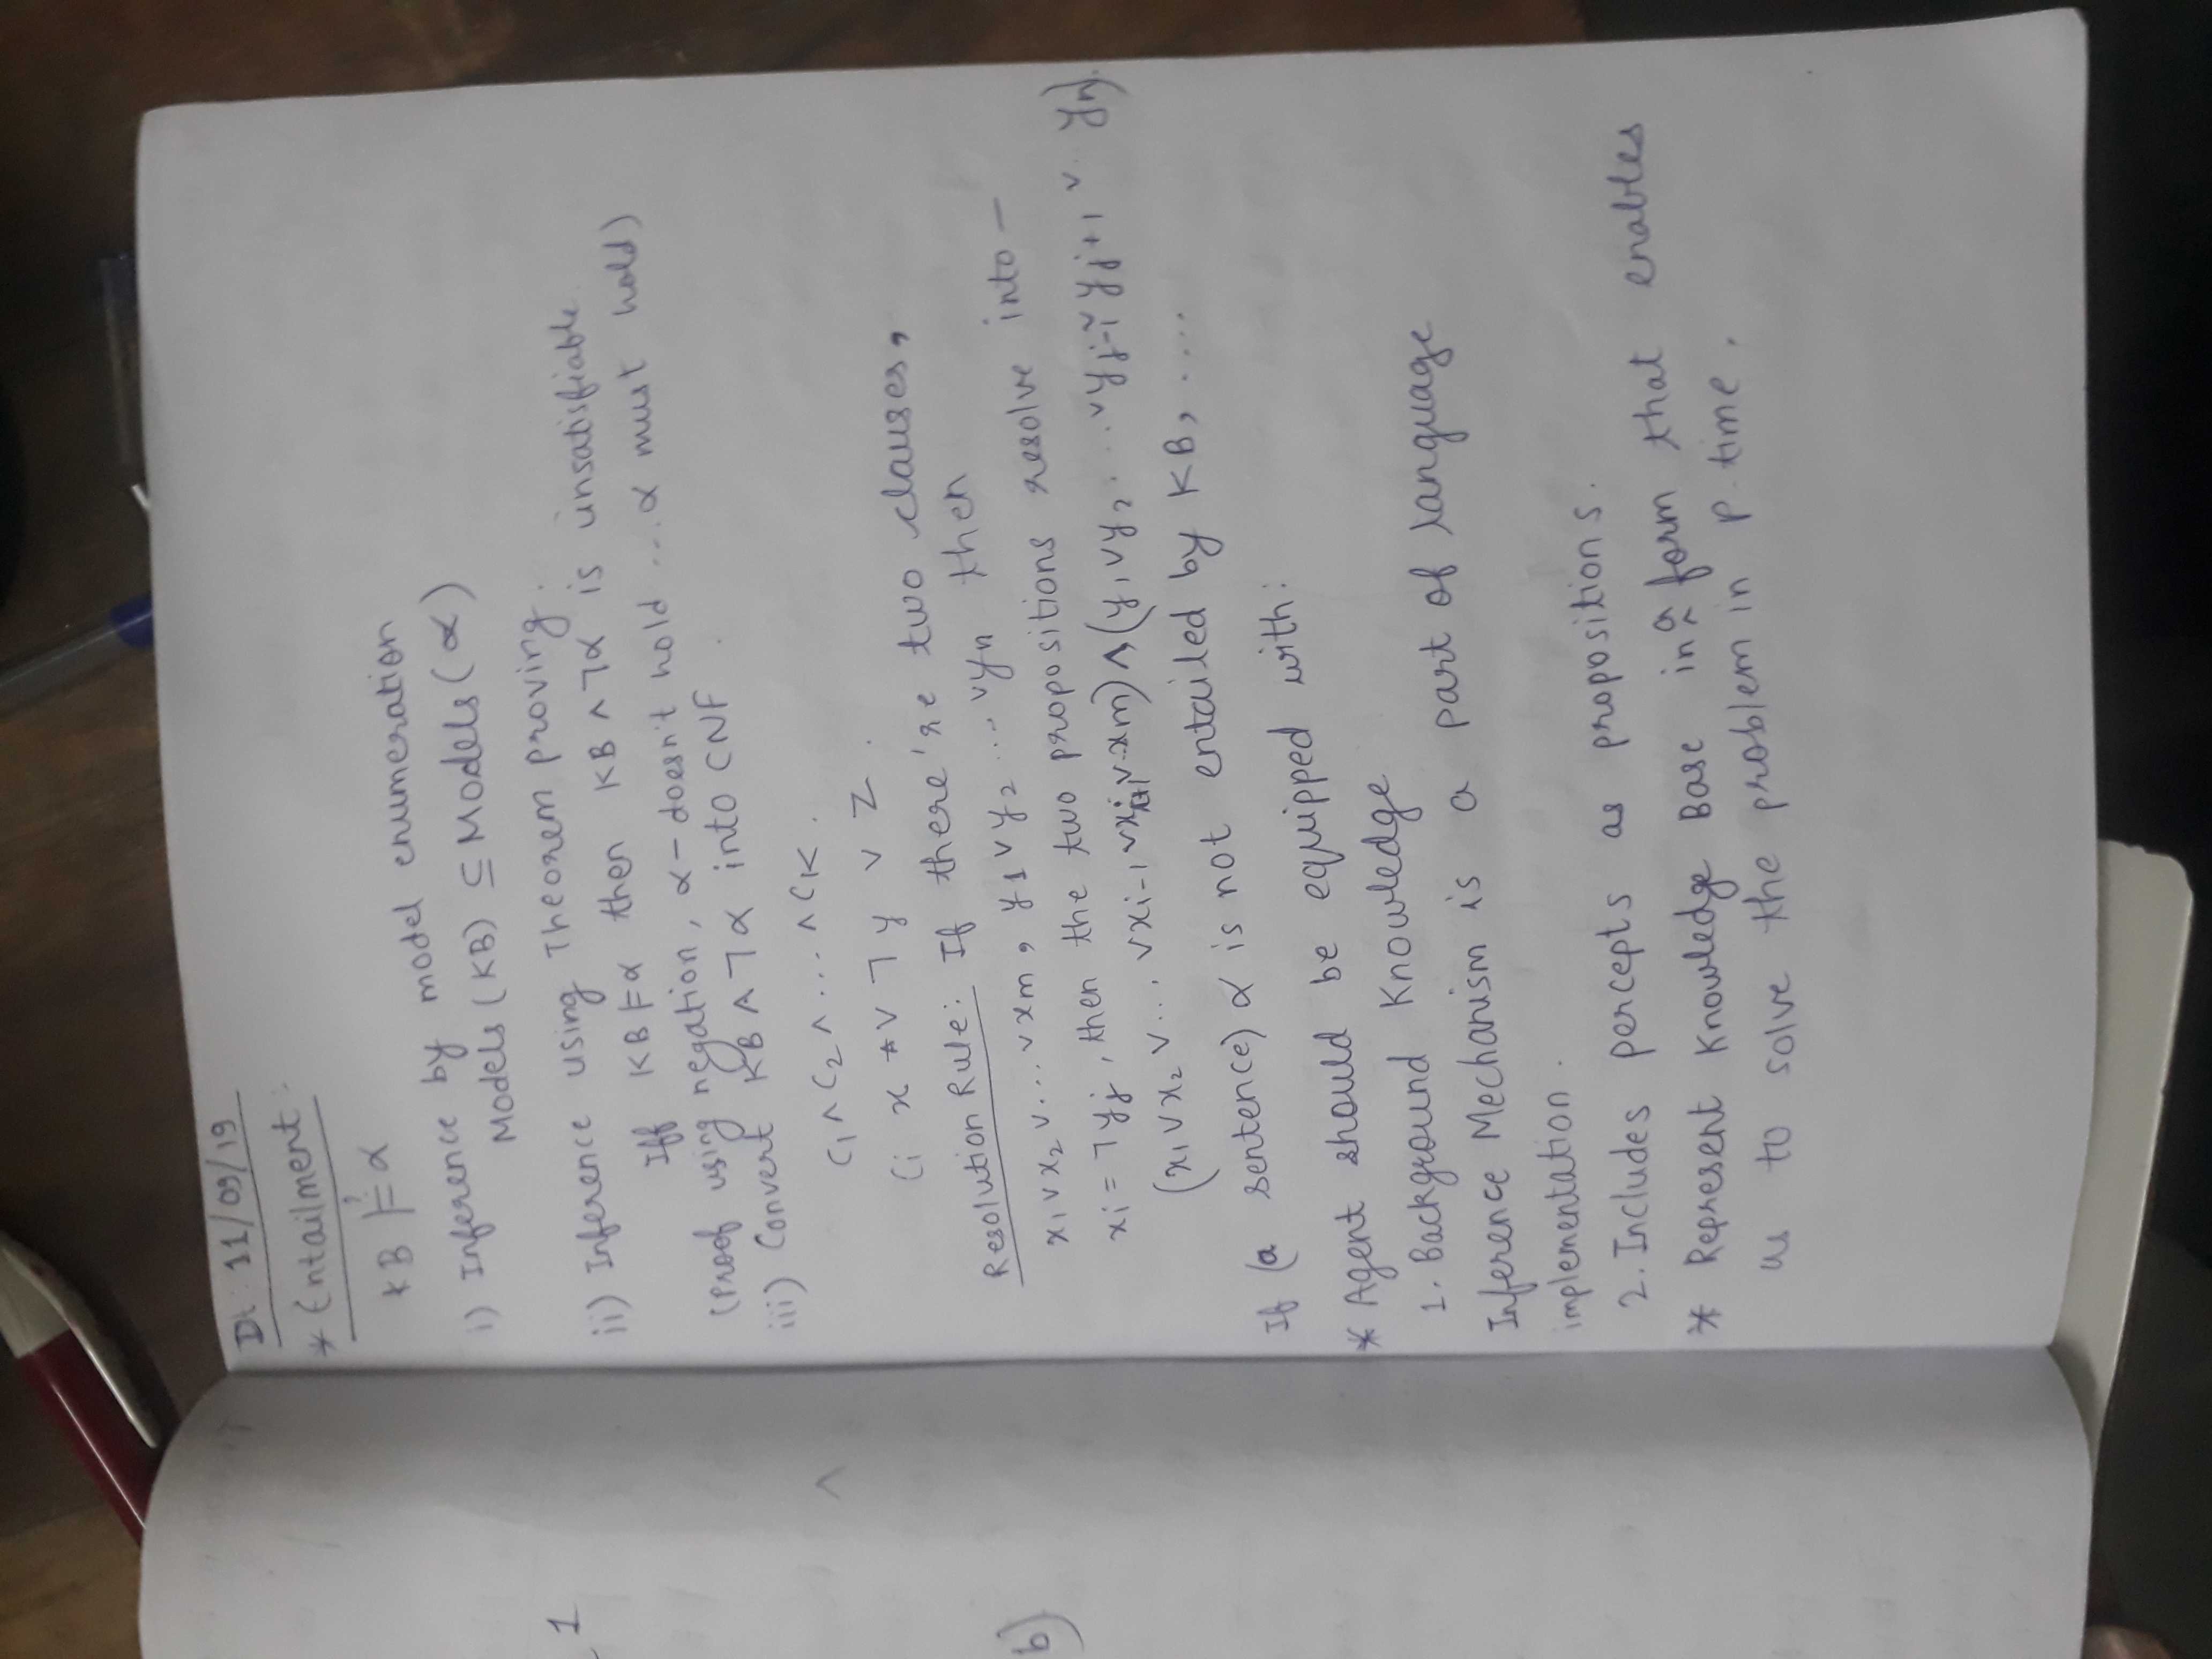 1
b)
^
Dt: 11/09/19
* Entailment:
KB ⊨? α
i) Inference by model enumeration
Models (KB) ⊆ Models (α)
ii) Inference using Theorem proving
Iff KB ⊨ α then KB ∧ ¬α is unsatisfiable.
(Proof using negation, α - doesn't hold ... α must hold)
iii) Convert KB ∧ ¬α into CNF.
C1 ∧ C2 ∧ ... ∧ CK.
Ci x ∨ ¬y ∨ z.
Resolution Rule: If there're two clauses,
x1 ∨ x2 ∨ ... ∨ xm, y1 ∨ y2 ... ∨ yn then
xi = ¬yj, then the two propositions resolve into —
(x1 ∨ x2 ∨ ... ∨ xi-1 ∨ xi+1 ∨ .. xm) ∧ (y1 ∨ y2 ... ∨ yj-1 ∨ yj+1 ∨ .. yn).
If (a sentence) α is not entailed by KB, ....
* Agent should be equipped with:
1. Background Knowledge
Inference Mechanism is a part of language
implementation.
2. Includes percepts as propositions.
* Represent Knowledge Base in a form that enables
us to solve the problem in P-time.